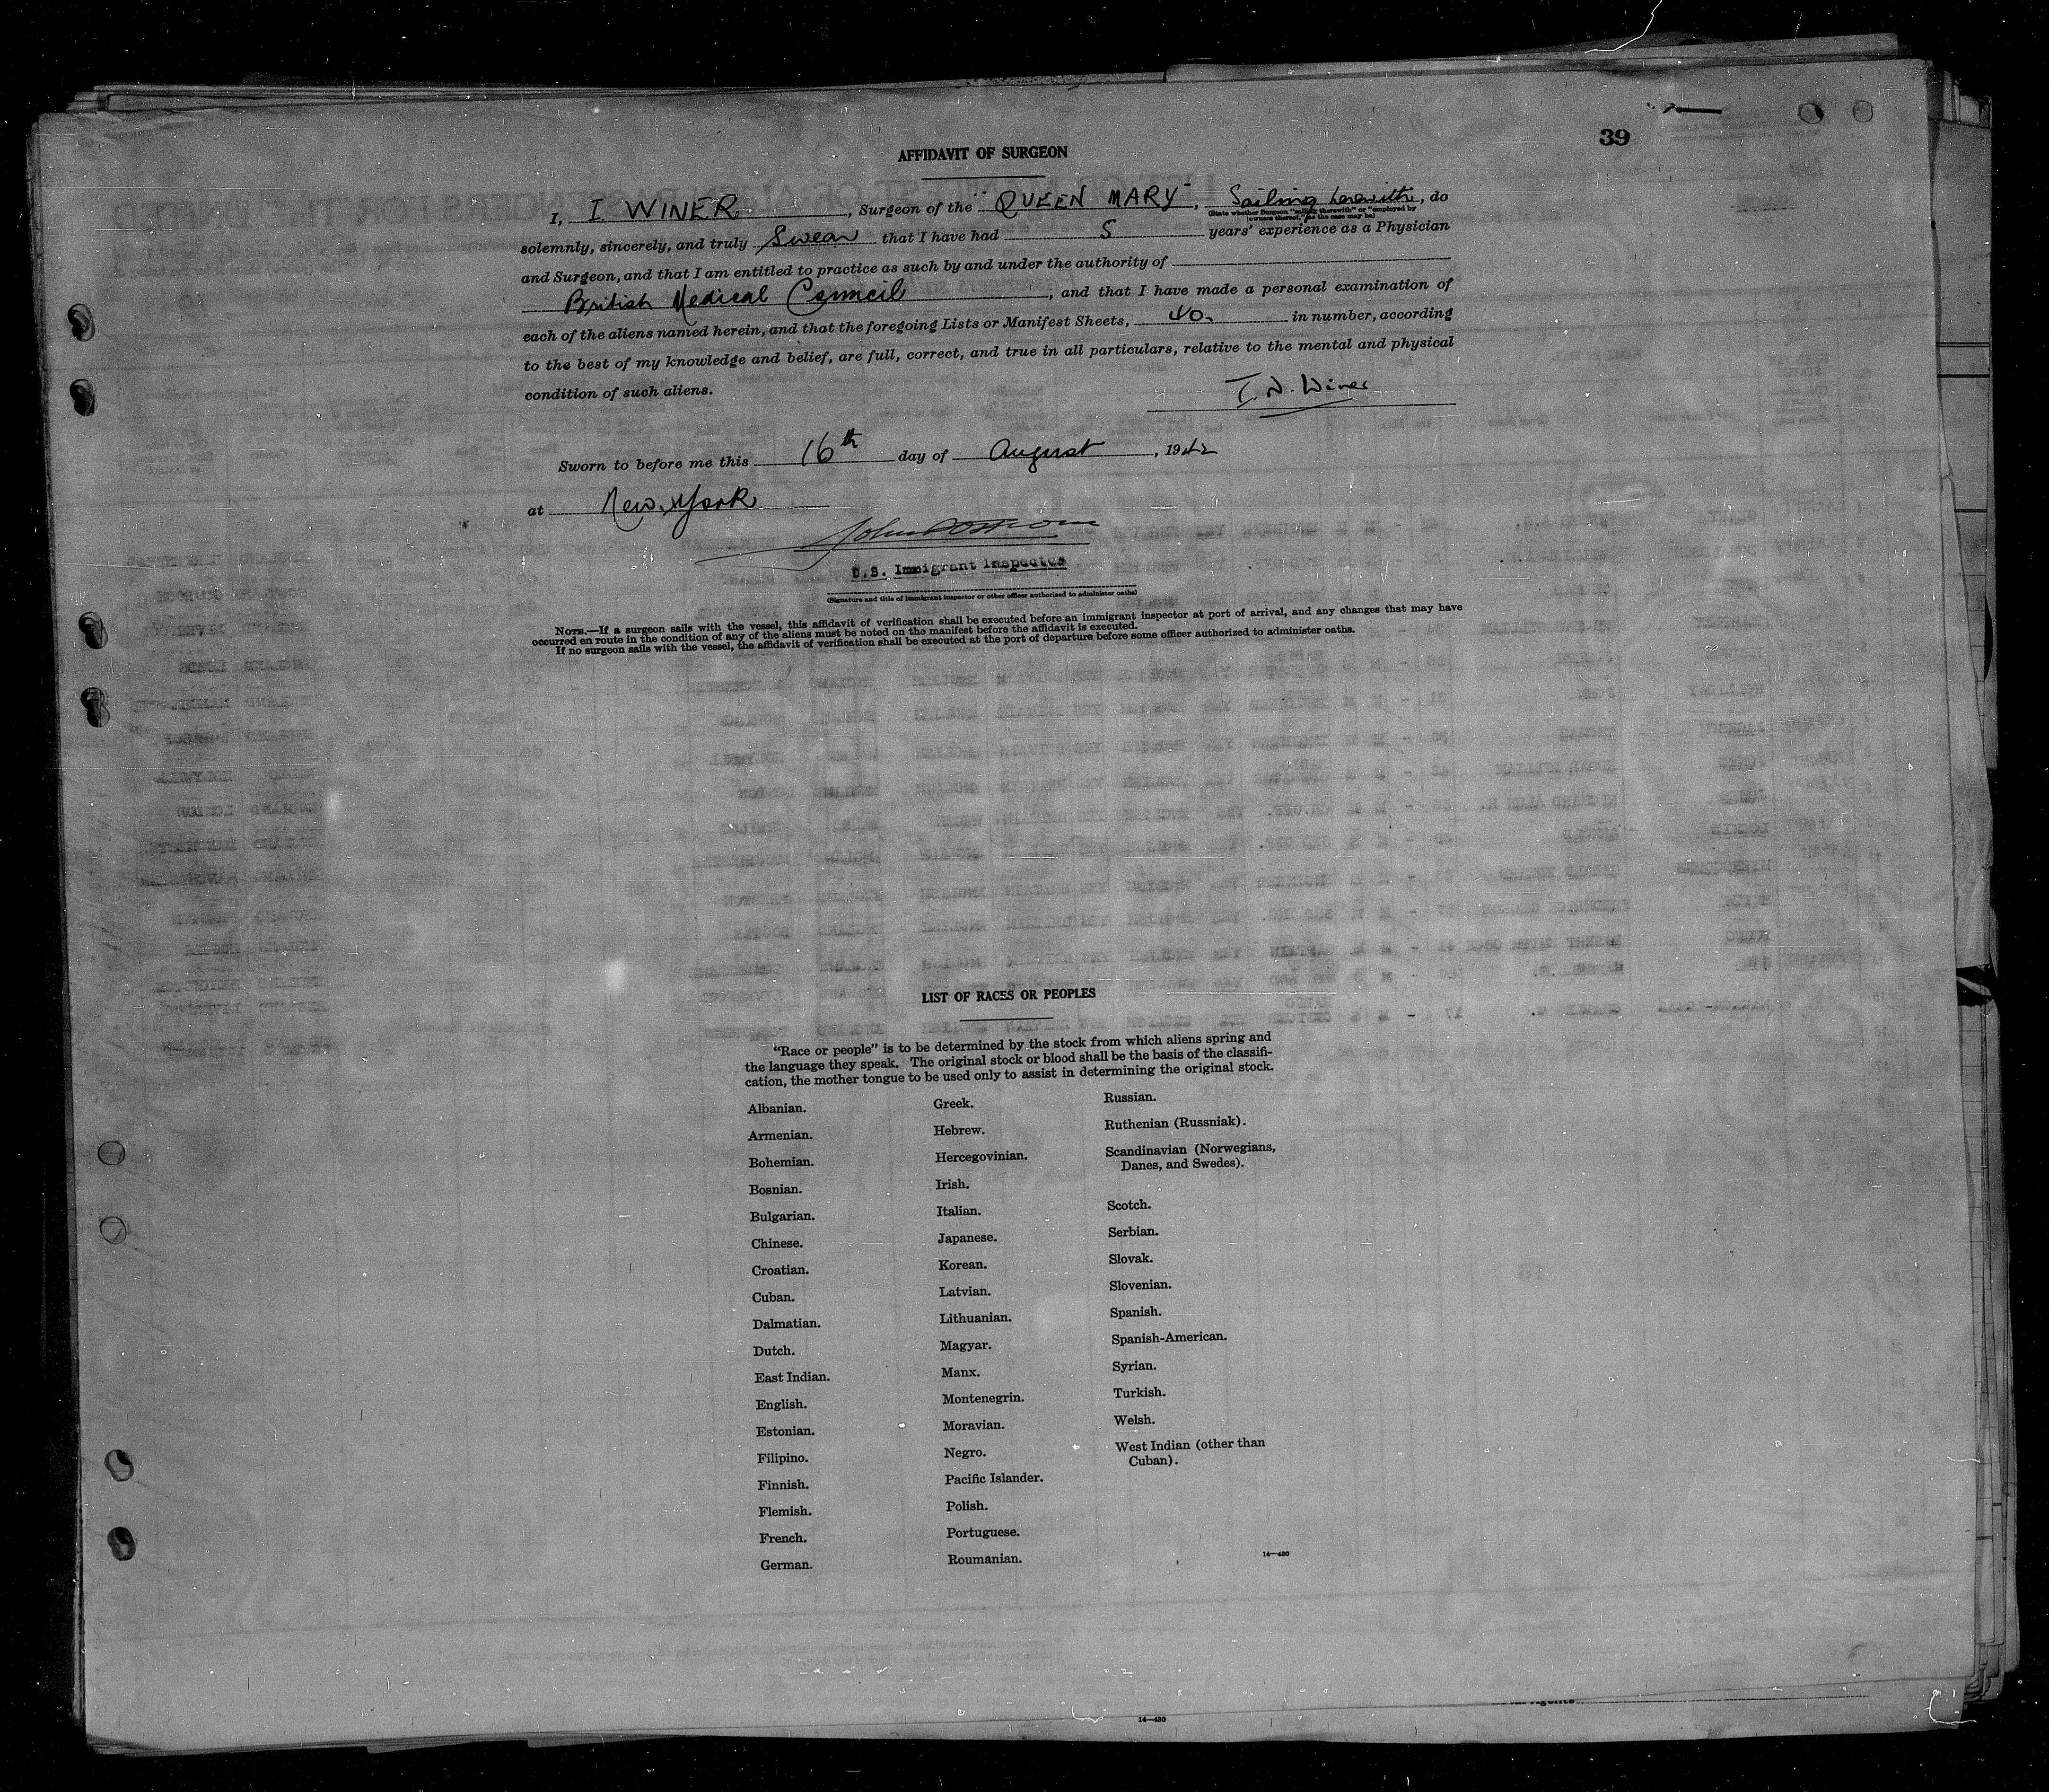 39
AFFIDAVIT OF SURGEON
I, I WINER, Surgeon of the "QUEEN MARY", Sailing therewith, do
(State whether Surgeon "sailing therewith" or "employed by
owners thereof," as the case may be)
solemnly, sincerely, and truly Swear that I have had 5 years' experience as a Physician
and Surgeon, and that I am entitled to practice as such by and under the authority of
British Medical Council, and that I have made a personal examination of
each of the aliens named herein, and that the foregoing Lists or Manifest Sheets, 40. in number, according
to the best of my knowledge and belief, are full, correct, and true in all particulars, relative to the mental and physical
condition of such aliens.
I. N. Winer
Sworn to before me this 16th day of August, 1942
at New York
U.S. Immigrant Inspector
(Signature and title of immigrant inspector or other officer authorized to administer oaths)
NOTE.—If a surgeon sails with the vessel, this affidavit of verification shall be executed before an immigrant inspector at port of arrival, and any changes that may have
occurred en route in the condition of any of the aliens must be noted on the manifest before the affidavit is executed.
If no surgeon sails with the vessel, the affidavit of verification shall be executed at the port of departure before some officer authorized to administer oaths.
LIST OF RACES OR PEOPLES
"Race or people" is to be determined by the stock from which aliens spring and
the language they speak. The original stock or blood shall be the basis of the classifi-
cation, the mother tongue to be used only to assist in determining the original stock.
Albanian.
Armenian.
Bohemian.
Bosnian.
Bulgarian.
Chinese.
Croatian.
Cuban.
Dalmatian.
Dutch.
East Indian.
English.
Estonian.
Filipino.
Finnish.
Flemish.
French.
German.
Greek.
Hebrew.
Hercegovinian.
Irish.
Italian.
Japanese.
Korean.
Latvian.
Lithuanian.
Magyar.
Manx.
Montenegrin.
Moravian.
Negro.
Pacific Islander.
Polish.
Portuguese.
Roumanian.
Russian.
Ruthenian (Russniak).
Scandinavian (Norwegians,
Danes, and Swedes).
Scotch.
Serbian.
Slovak.
Slovenian.
Spanish.
Spanish-American.
Syrian.
Turkish.
Welsh.
West Indian (other than
Cuban).
14—430
14—430